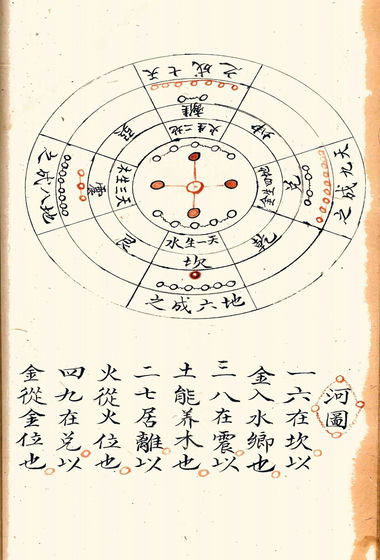 河圖
一六在坎以
金入水鄉也
三八在震以
土能养木也
二七居離以
火從火位也
四九在兌以
金從金位也
天七成之
離
地二生火
坤
天九成之
兌
地四生金
乾
天一生水
坎
地六成之
艮
地八成之
震
天三生木
巽